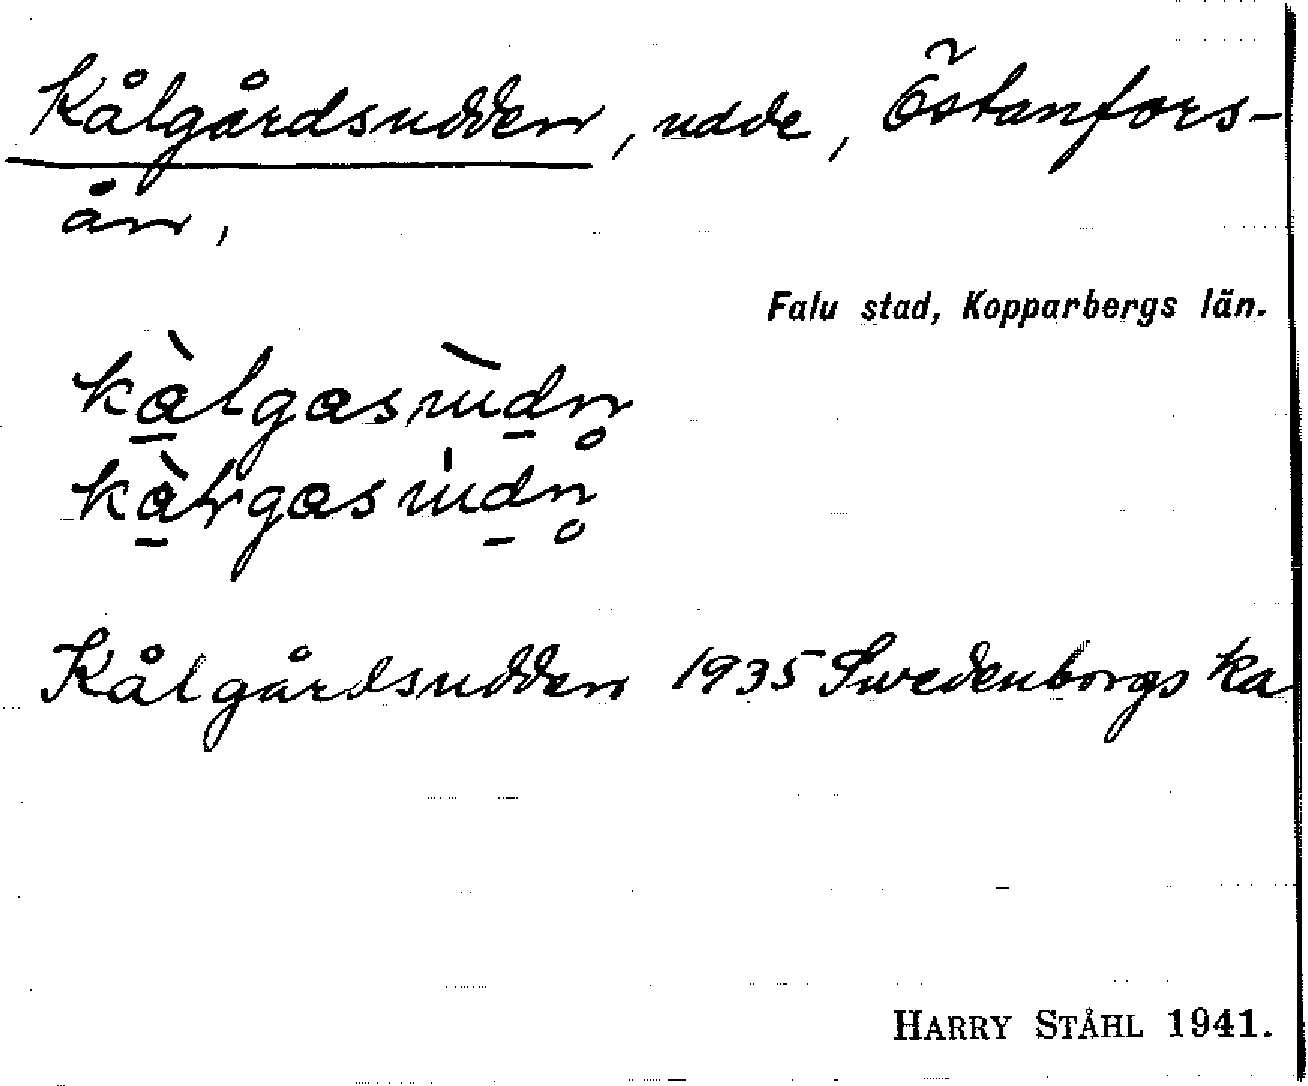 Kålgårdsudden, udde, Östanfors-
ån,
Falu stad, Kopparbergs län.
Kålgårdsudden 1935 Swedenborgs ka
HARRY STÅHL 1941.